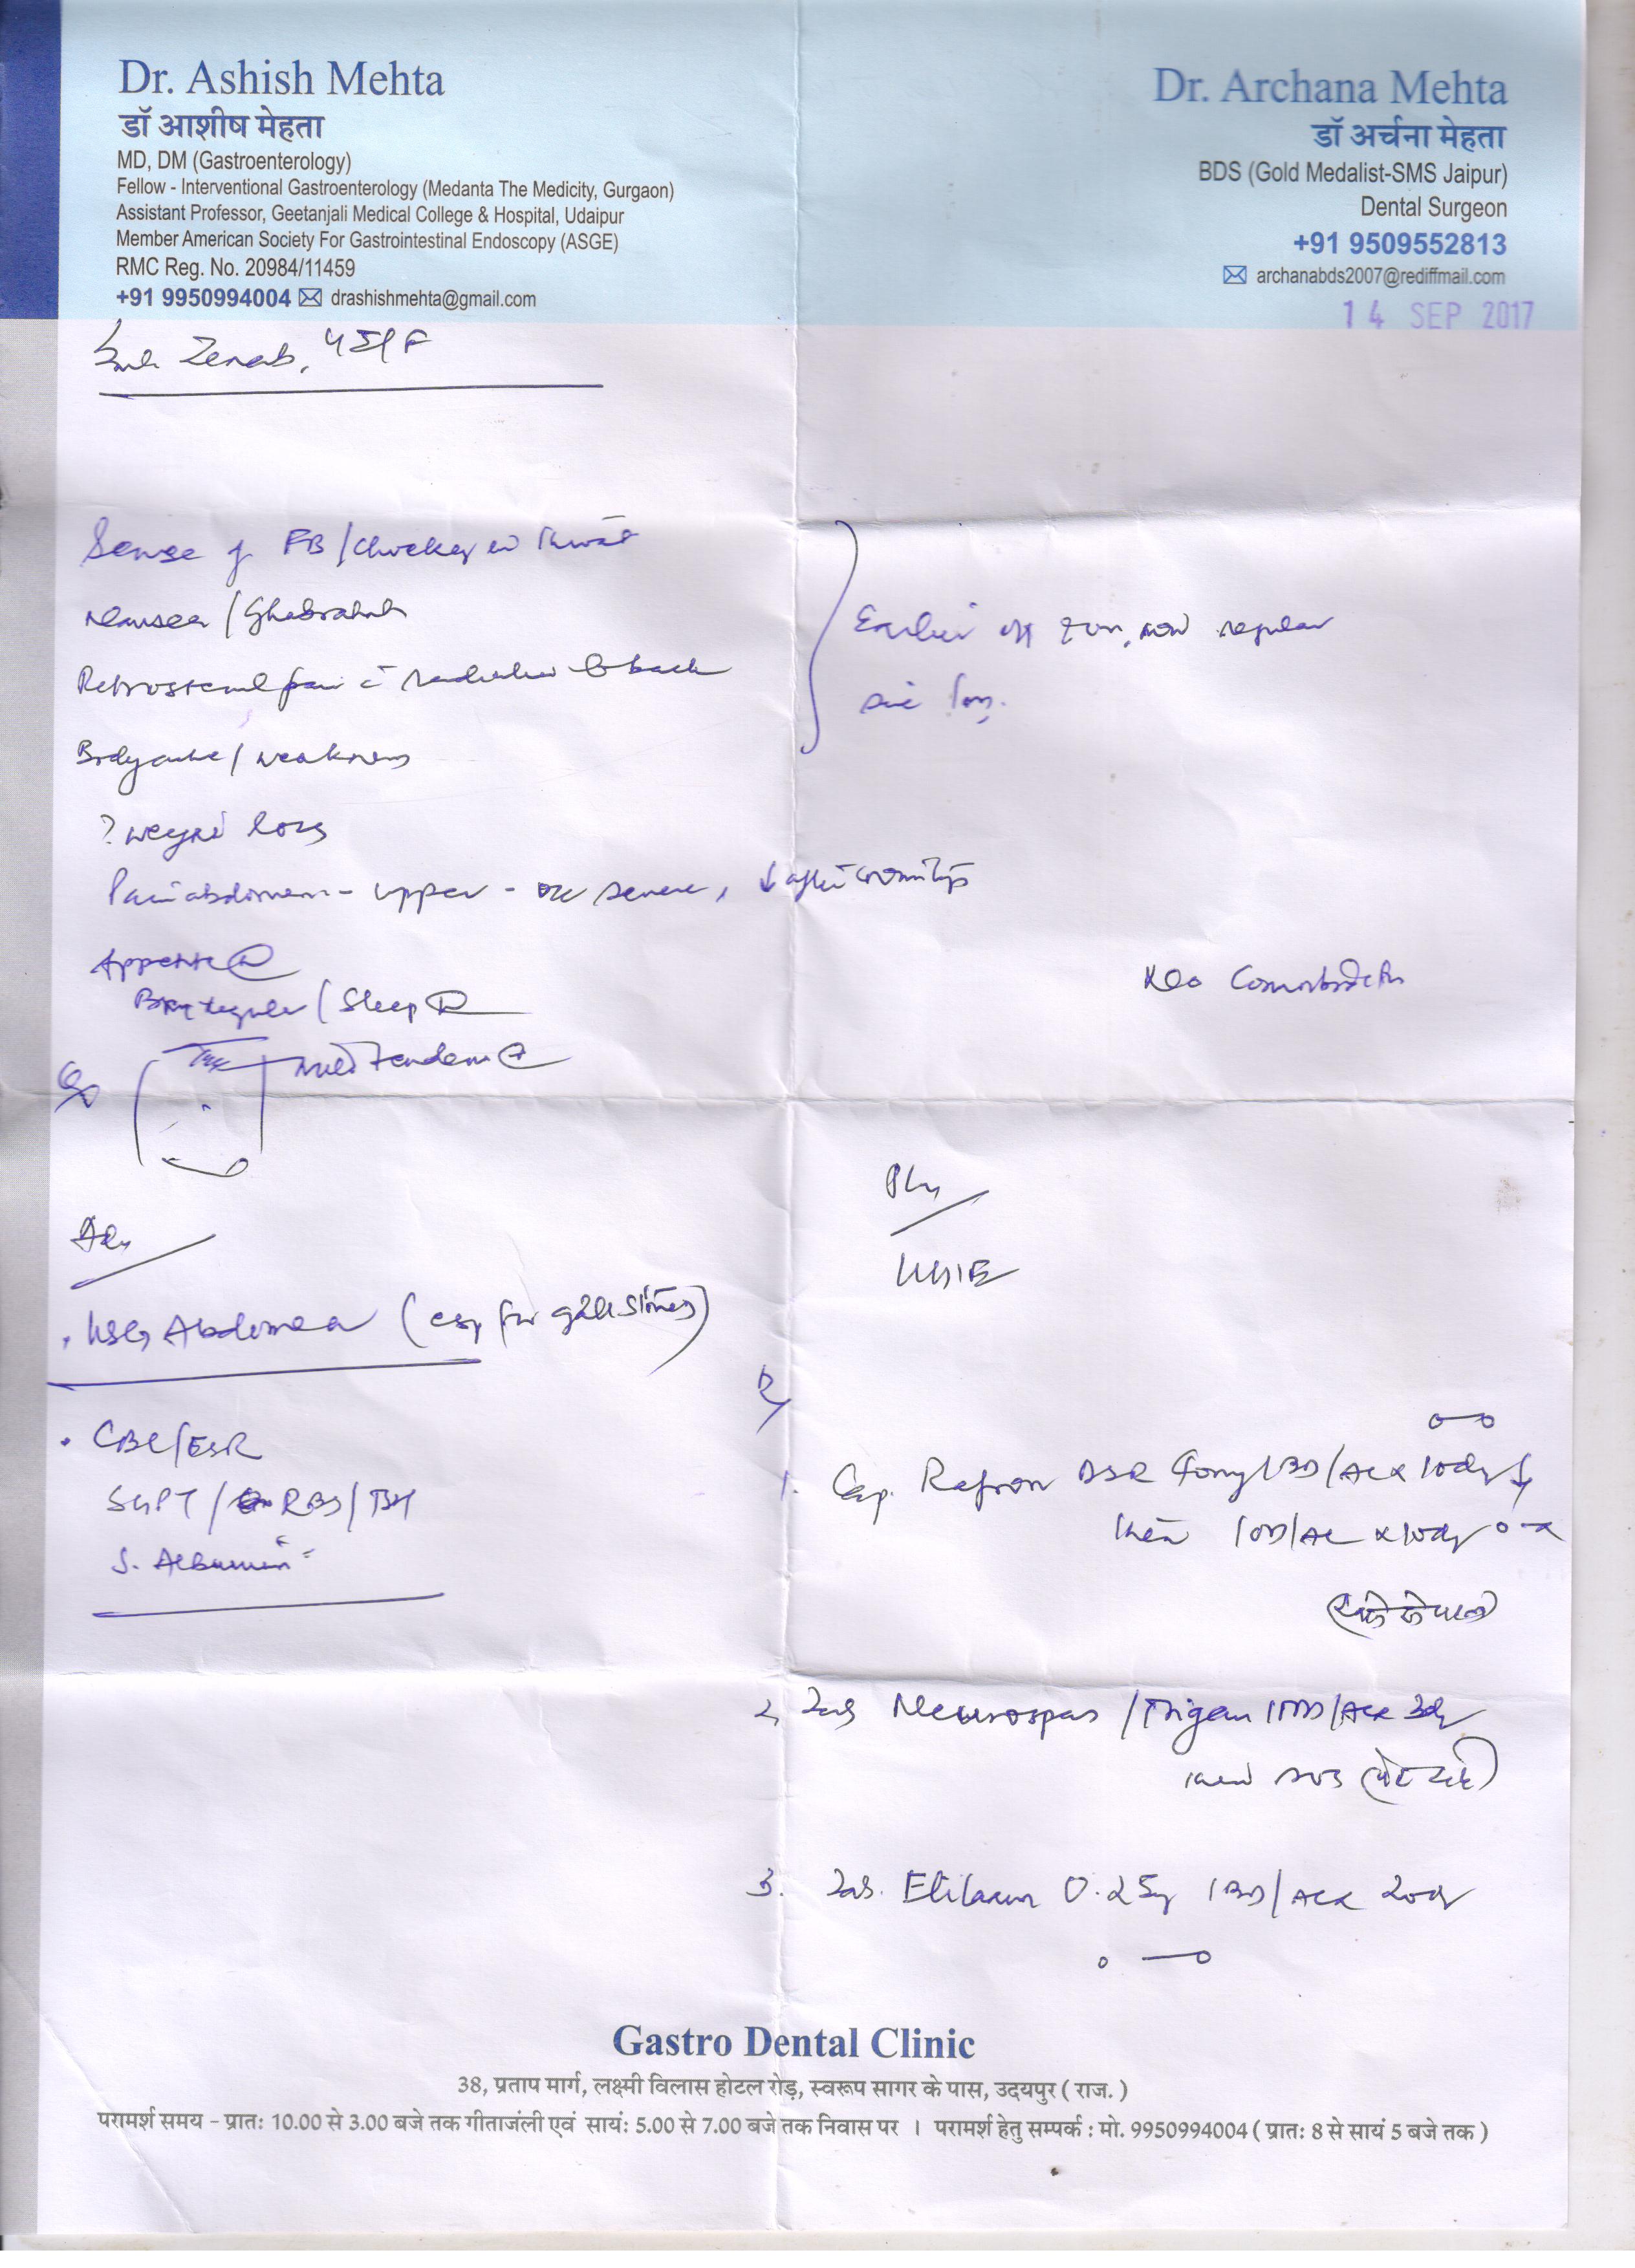 Dr. Ashish Mehta
डॉ आशीष मेहता
MD, DM (Gastroenterology)
Fellow - Interventional Gastroenterology (Medanta The Medicity, Gurgaon)
Assistant Professor, Geetanjali Medical College & Hospital, Udaipur
Member American Society For Gastrointestinal Endoscopy (ASGE)
RMC Reg. No. 20984/11459
+91 9950994004 drashishmehta@gmail.com
Dr. Archana Mehta
डॉ अर्चना मेहता
BDS (Gold Medalist-SMS Jaipur)
Dental Surgeon
+91 9509552813
archanabds2007@rediffmail.com
14 SEP 2017
Zenab,
Sense of FB/choking in throat
Nausea/Ghabrahat
Retrosternal pain c̄ radiation to back
Bodyache/weakness
? weight loss
Earlier off & on, now regular
since
Pain abdomen - upper - severe, ↓ after vomiting
Appetite
regular/Sleep
No Comorbidities
mild tenderness
Adv
. USG Abdomen (esp for gall stones)
. CBC/ESR
SGPT/RBS/TSH
S. Albumin
Plan
UGIE
1. Cap. DSR 1BD/AC x 10dy
then 1OD/AC x 10dy
2. Tab /Trigan 1TDS/AC x 3dy
then SOS
3. Tab. Etilaam 0.25mg 1BD/AC x 20dy
Gastro Dental Clinic
38, प्रताप मार्ग, लक्ष्मी विलास होटल रोड़, स्वरूप सागर के पास, उदयपुर ( राज. )
परामर्श समय - प्रातः 10.00 से 3.00 बजे तक गीताजंली एवं सायंः 5.00 से 7.00 बजे तक निवास पर । परामर्श हेतु सम्पर्क : मो. 9950994004 ( प्रातः 8 से सायं 5 बजे तक )